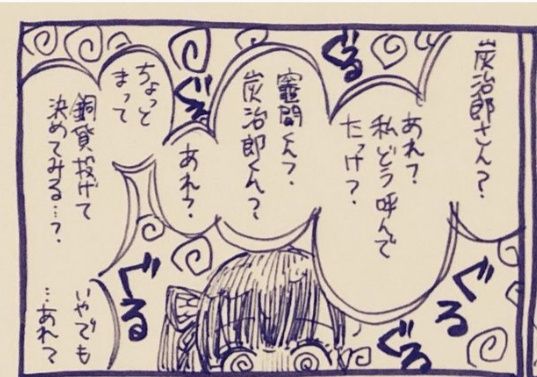 炭治郎さん?
あれ?
私どう呼んで
たっけ?
竈門くん?
炭治郎くん?
あれ?
ちょっと
まって
銅貨投げて
決めてみる…?
いやでも
…あれ?
ぐる
ぐる
ぐる
ぐる
ぐる